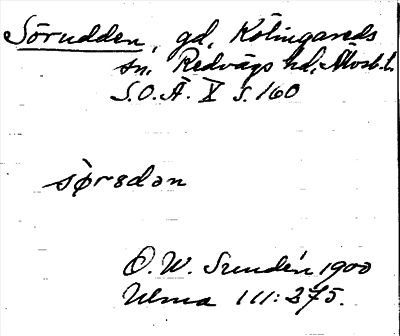 Sörudden, gd, Kölingareds
sn. Redvägs hd, Älvsb. l.
S.O.Ä. X s. 160
sørɐdən
O. W. Sundén 1900
Ulma 111:275.